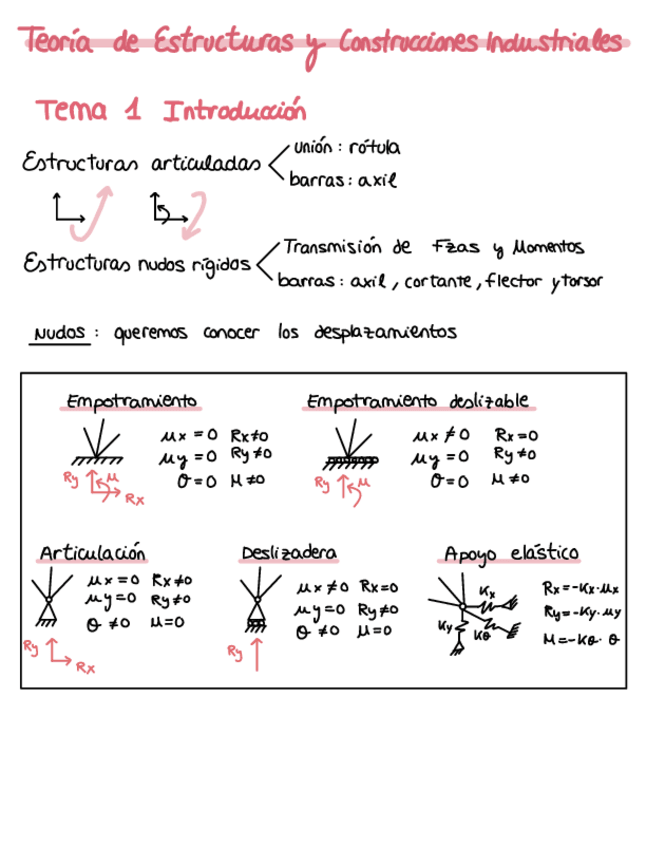 Teoría de Estructuras y Construcciones Industriales
Tema 1 Introducción
Estructuras articuladas
unión: rótula
barras: axil
Estructuras nudos rígidos
Transmisión de Fzas y Momentos
barras: axil, cortante, flector y torsor
Nudos: queremos conocer los desplazamientos
Empotramiento
μx = 0 Rx≠0
μy = 0 Ry≠0
θ = 0 M≠0
Ry M
Rx
Empotramiento deslizable
μx ≠ 0 Rx=0
μy = 0 Ry≠0
θ = 0 M≠0
Ry M
Articulación
μx = 0 Rx≠0
μy = 0 Ry≠0
θ ≠ 0 M=0
Ry
Rx
Deslizadera
μx ≠ 0 Rx=0
μy = 0 Ry≠0
θ ≠ 0 M=0
Ry
Apoyo elástico
Kx
Ky Kθ
Rx=-Kx·μx
Ry=-Ky·μy
M=-Kθ·θ